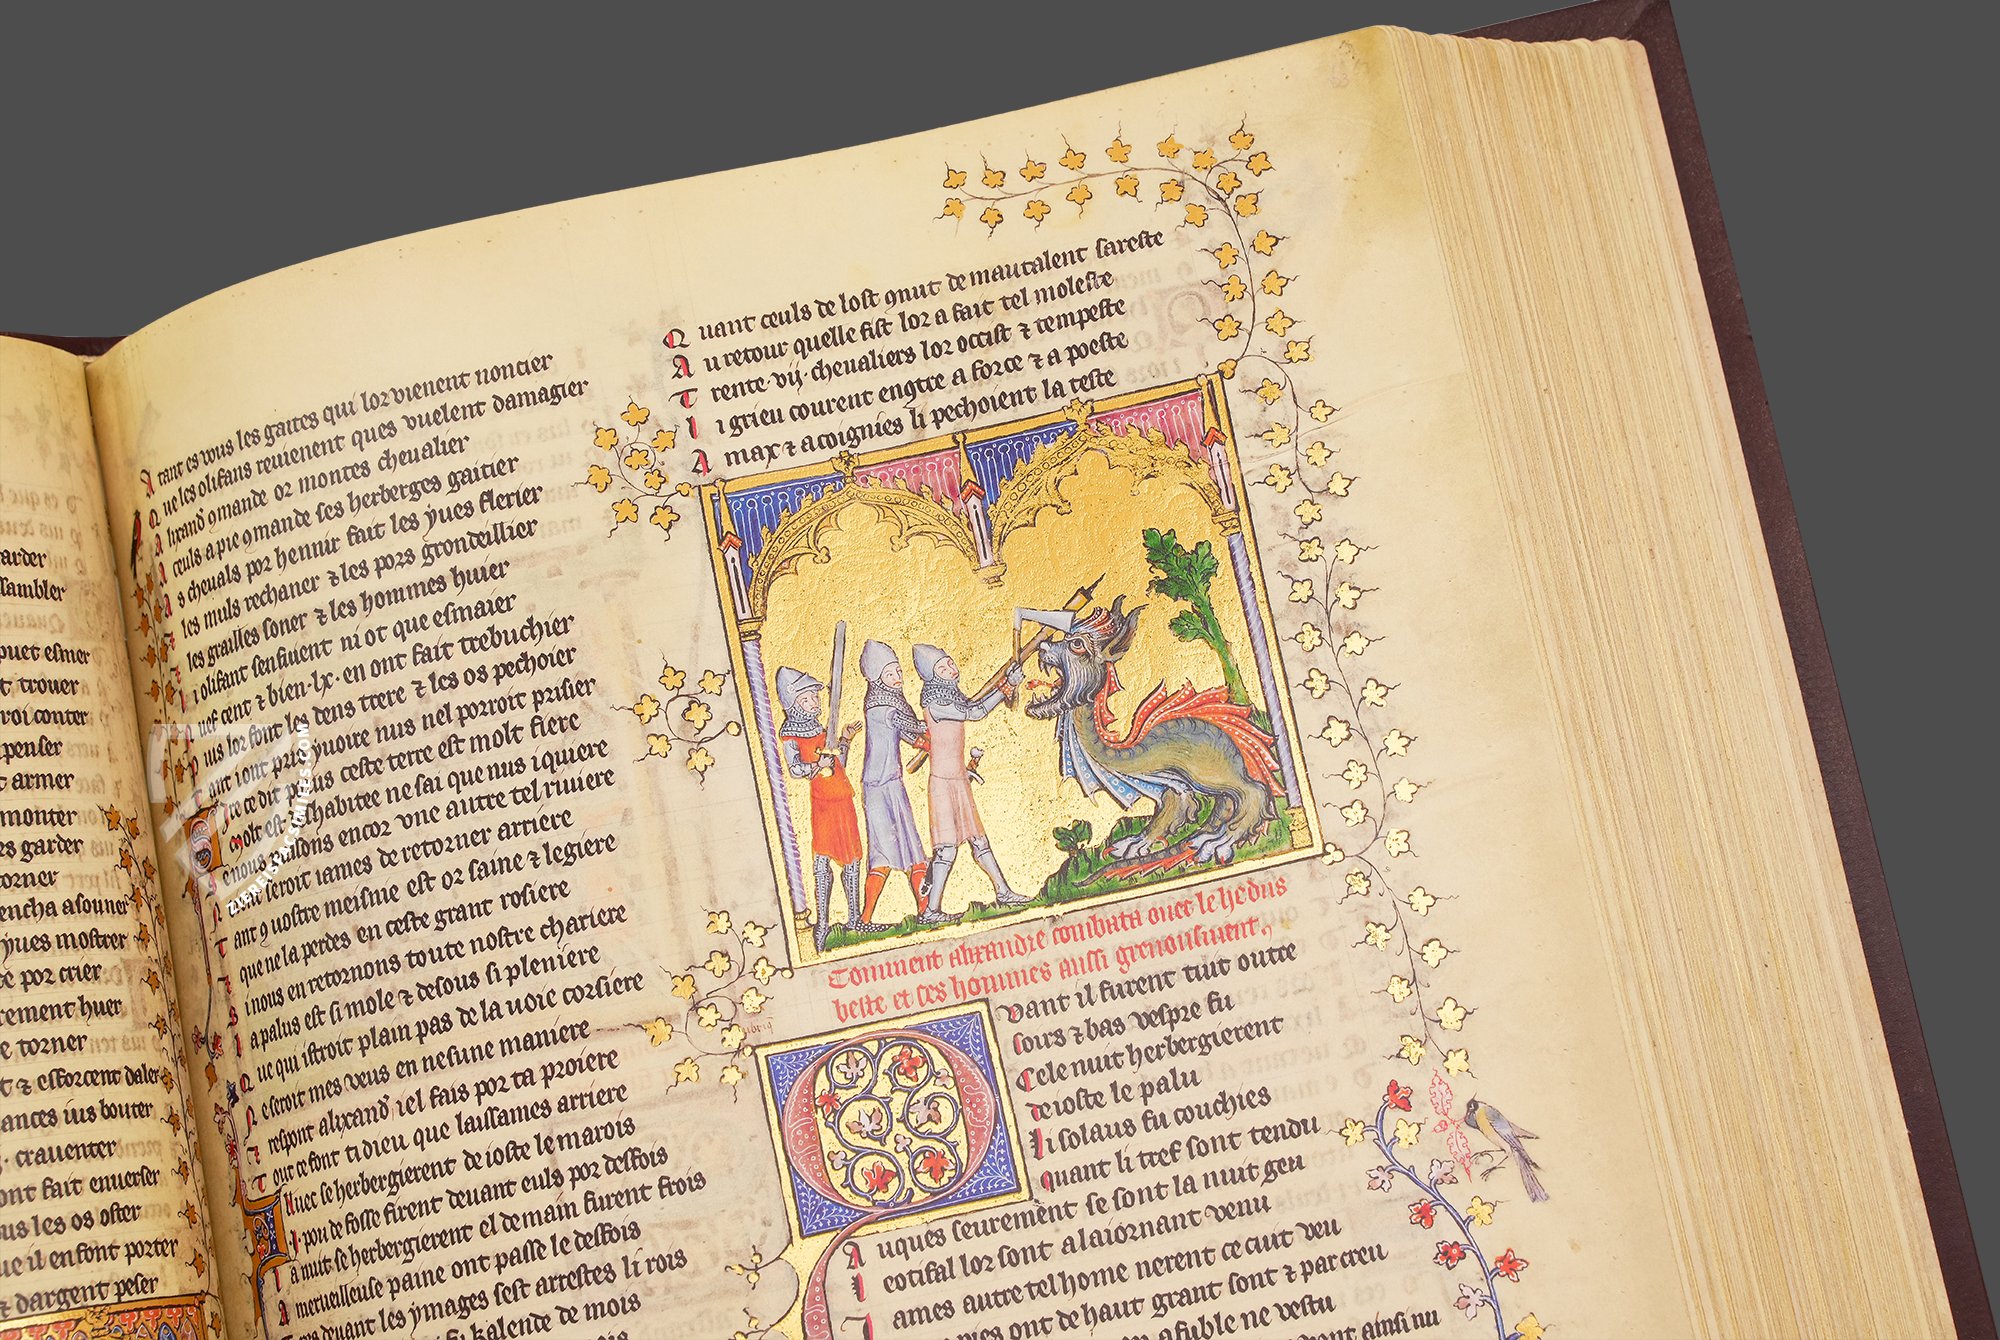 arder
ssambler
puet esmer
t trouer
roi conter
penser
t armer
monter
rs garder
torner
encha asouner
yues mostrer
de por crier
rement huer
e torner
t ⁊ efforcent daler
ances ius bouter
crauenter
ont fait enuerser
us les os oster
ue il en font porter
⁊ dargent peser
A tant es vous les gaites qui lor vienent noncier
Q ue les olifans reuienent ques vuelent damagier
A lixand 9mande or montes cheualier
A ceuls a pie 9mande ses herberges gaitier
A s cheuals por hennir fait les yues flerier
les muls rechaner ⁊ les pors grondeillier
les grailles soner ⁊ les hommes huier
i olifant senfuient ni ot que esmaier
uef cent ⁊ bien .lx. en ont fait trebuchier
uis lor font les dens trere ⁊ les os pechoier
ant i ont pris yuoire nus nel porroit prisier
ire ce dit porus ceste terre est molt fiere
molt est habitee ne sai que nus i quiere
e nous puisons encor vne autre tel riuiere
seroit iames de retorner arriere
T ant 9 vostre meisnie est or saine ⁊ legiere
que ne la perdes en ceste grant rosiere
i nous en retornons toute nostre chariere
a palus est si mole ⁊ desous si pleniere
Q ue qui istroit plain pas de la uoie corsiere
N e seroit mes veus en nesune maniere
T respont alixand iel fais por ta proiere
T out ce font ti dieu que laissames arriere
Auec se herbergierent de ioste le marois
I pou de fosse firent deuant euls por desfois
L a nuit se herbergierent el demain furent frois
A merueilleuse paine ont passe le desfois
T res deuant les ymages sest arrestes li rois
kalende de mois
Q uant ceuls de lost 9nut de mautalent sareste
A u retour quelle fist lor a fait tel moleste
T rente .vij. cheualiers lor occist ⁊ tempeste
L i grieu courent en9tre a force ⁊ a poeste
A max ⁊ a coignies li pechoient la teste
Comment alixandre combata ouec le hedus
beste et ses hommes aussi
Qvant il furent tuit outre
soirs ⁊ bas vespre fu
Cele nuit herbergierent
de ioste le palu
Li solaus fu couchies
quant li tref sont tendu
A uques seurement se sont la nuit geu
L eotifal lor sont a laiornant venu
I ames autre tel home nerent ce cuit veu
pies ont de haut grant sont ⁊ parcreu
afuble ne vestu
ont ainsi nu
FACSIMILES.COM